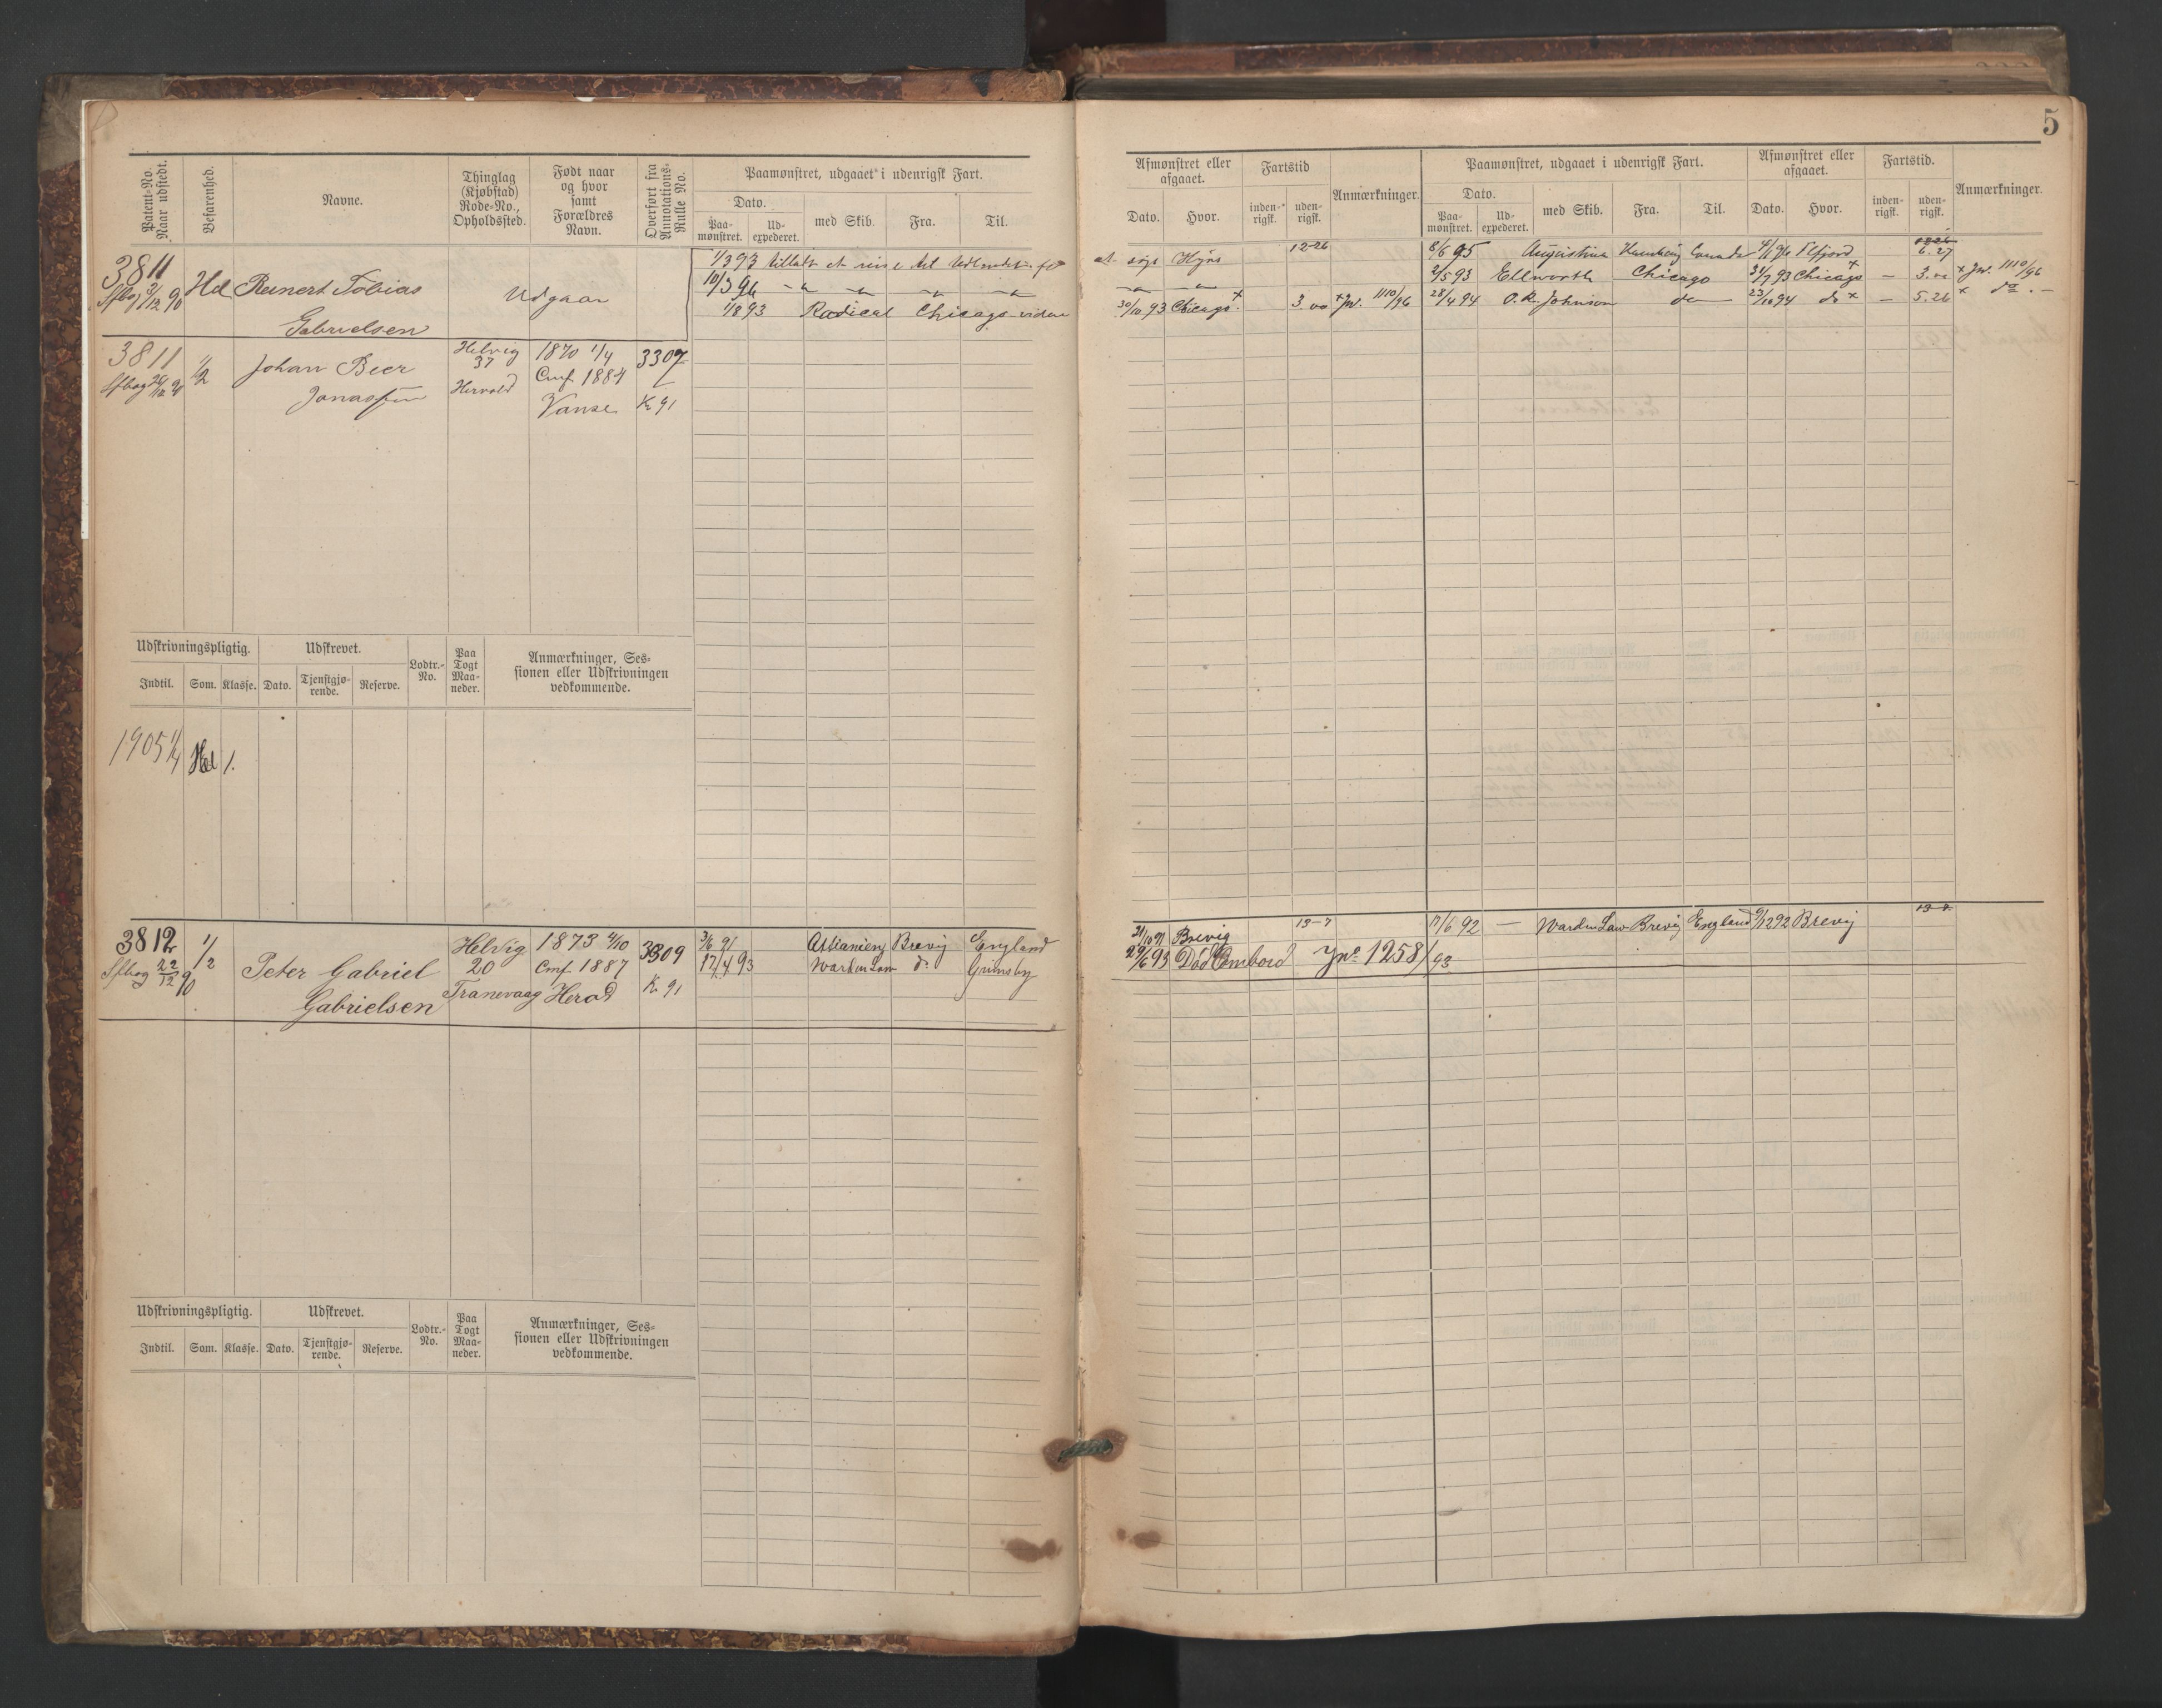 5
Patent-No. Naar udstedt.
Befarenhed.
Navne.
Thinglag (Kjøbstad) Rode-No., Opholdssted.
Født naar og hvor samt Forældres Navn.
Overført fra Annotations-Rulle No.
Paamønstret, udgaaet i udenrigsk Fart.
Dato.
Paa-mønstret.
Ud-expederet.
med Skib.
Fra.
Til.
3811 Hel Reinert Tobias Udgaar
Gabrielsen
1/3 93 tilladt at reise til Udlandet
10/3 96
1/8 93 Radical Chicago
3811 1/2 Johan Beer Helvig 37 1870 1/4 3307
Jonassen Conf. 1884
Vanse K 91
Udskrivningspligtig.
Udskrevet.
Lodtr.-No.
Paa Togt Maa-neder.
Anmærkninger, Ses-
sionen eller Udskrivningen
vedkommende.
Indtil. Som. Klasse. Dato. Tjenstgjø-rende. Reserve.
1905 1/4 Hel 1.
3812 1/2 Peter Gabriel Helvig 1873 4/10 3309
Sfbog 22/12 90 20 Conf 1887
Gabrielsen Tranevaag Herad K 91
3/6 91 Brevig England
17/4 93 Warden Law do Grimsby
Udskrivningspligtig.
Udskrevet.
Lodtr.-No.
Paa Togt Maa-neder.
Anmærkninger, Ses-
sionen eller Udskrivningen
vedkommende.
Indtil. Som. Klasse. Dato. Tjenstgjø-rende. Reserve.
Afmønstret eller afgaaet.
Fartstid
Anmærkninger.
Dato. Hvor. inden-rigsk. uden-rigsk.
Paamønstret, udgaaet i udenrigsk Fart.
Dato.
Paa-mønstret.
Ud-expederet.
med Skib. Fra. Til.
Afmønstret eller afgaaet.
Dato. Hvor.
Fartstid.
inden-rigsk. uden-rigsk.
Anmærkninger.
at søge Hyre 12-26 8/6 95 Augustina 6.27
2/5 93 Ellworth Chicago 31/7 93 Chicago x — 3.00 x Jn. 1110/96
30/10 93 Chicago x 3.00 x Jn. 1110/96 28/4 94 O.R. Johnson do 23/10 94 do x — 5.26 x do
31/10 91 Brevig 13-7 17/6 92 — Warden Law Brevig England 9/12 92 Brevig 13-7
29/6 93 Død Ombord Jno 1258/93